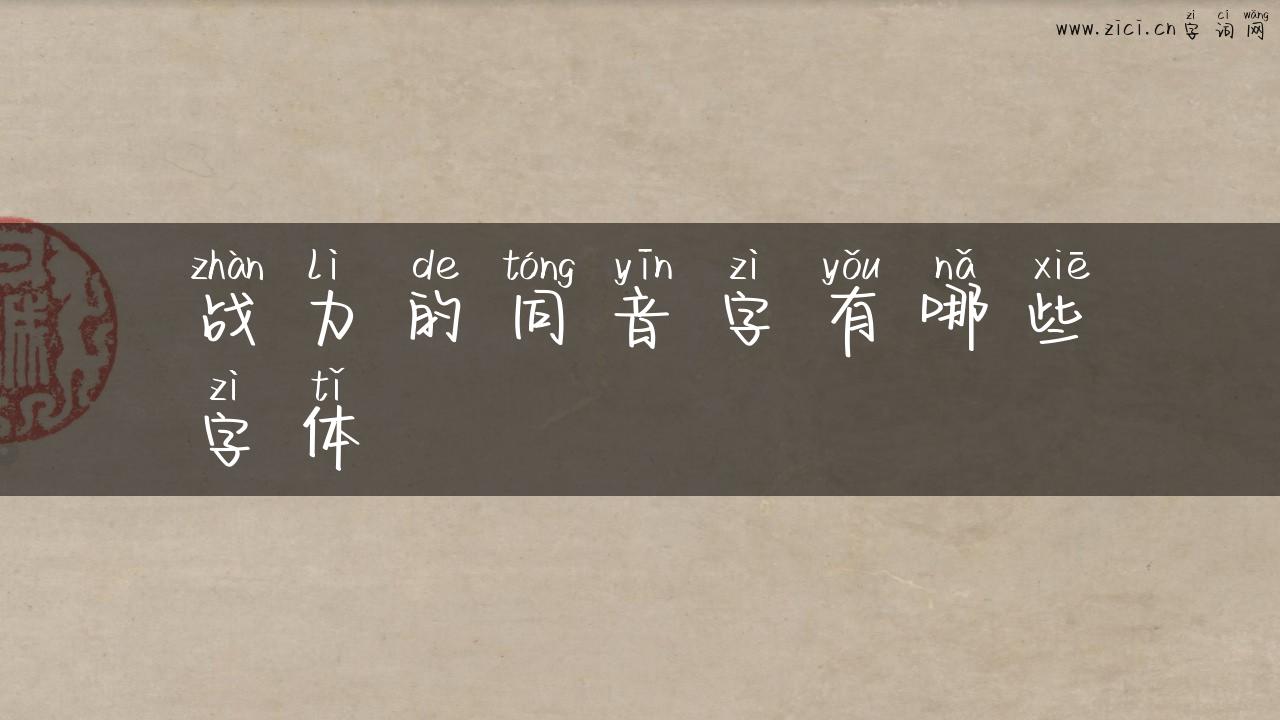 zì cí wǎng
www.zici.cn 字词网
zhàn lì de tóng yīn zì yǒu nǎ xiē
战力的同音字有哪些
zì tǐ
字体